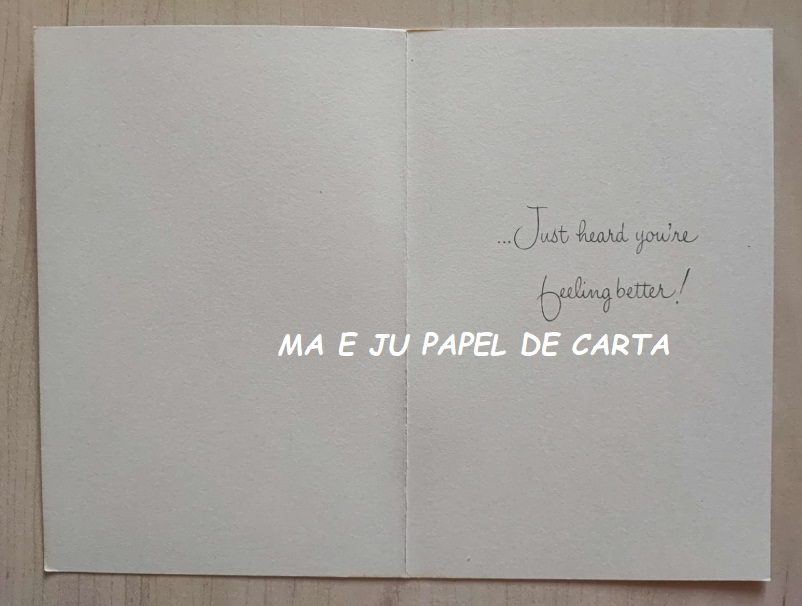 ...Just heard you're
feeling better!
MA E JU PAPEL DE CARTA